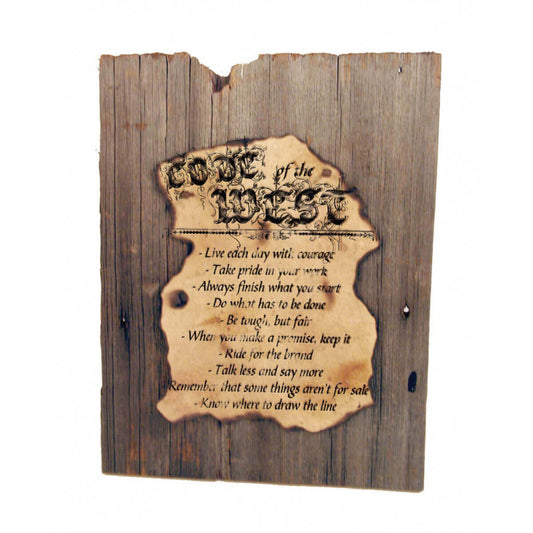 CODE of the
WEST
- Live each day with courage
- Take pride in your work
- Always finish what you start
- Do what has to be done
- Be tough, but fair
- When you make a promise, keep it
- Ride for the brand
- Talk less and say more
Remember that some things aren't for sale
- Know where to draw the line